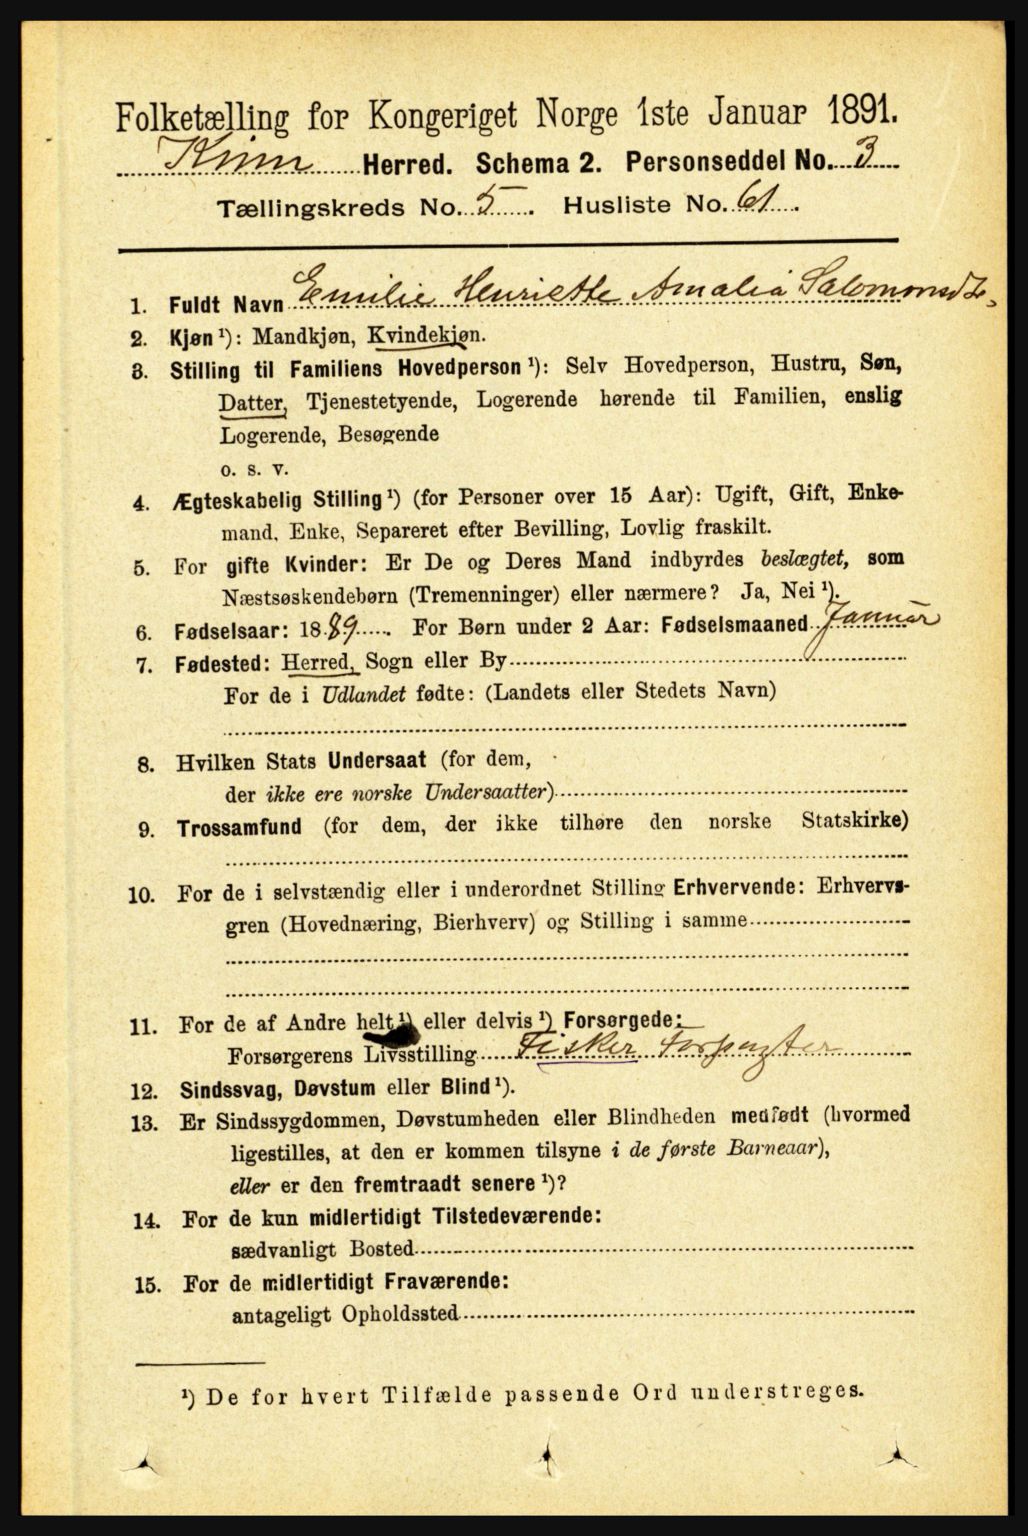 Folketælling for Kongeriget Norge 1ste Januar 1891.
Kinn Herred. Schema 2. Personseddel No. 3
Tællingskreds No. 5. Husliste No. 61.
1. Fuldt Navn Emilie Henriette Amalia Salomonsdtr
2. Kjøn ¹): Mandkjøn, Kvindekjøn.
3. Stilling til Familiens Hovedperson ¹): Selv Hovedperson, Hustru, Søn,
Datter, Tjenestetyende, Logerende hørende til Familien, enslig
Logerende, Besøgende
o. s. v.
4. Ægteskabelig Stilling ¹) (for Personer over 15 Aar): Ugift, Gift, Enke-
mand, Enke, Separeret efter Bevilling, Lovlig fraskilt.
5. For gifte Kvinder: Er De og Deres Mand indbyrdes beslægtet, som
Næstsøskendebørn (Tremenninger) eller nærmere? Ja, Nei ¹).
6. Fødselsaar: 1889. For Børn under 2 Aar: Fødselsmaaned Januar
7. Fødested: Herred, Sogn eller By
For de i Udlandet fødte: (Landets eller Stedets Navn)
8. Hvilken Stats Undersaat (for dem,
der ikke ere norske Undersaatter)
9. Trossamfund (for dem, der ikke tilhøre den norske Statskirke)
10. For de i selvstændig eller i underordnet Stilling Erhvervende: Erhvervs-
gren (Hovednæring, Bierhverv) og Stilling i samme
11. For de af Andre helt ¹) eller delvis ¹) Forsørgede:
Forsørgerens Livsstilling Fisker Forpagter
12. Sindssvag, Døvstum eller Blind ¹).
13. Er Sindssygdommen, Døvstumheden eller Blindheden medfødt (hvormed
ligestilles, at den er kommen tilsyne i de første Barneaar),
eller er den fremtraadt senere ¹)?
14. For de kun midlertidigt Tilstedeværende:
sædvanligt Bosted
15. For de midlertidigt Fraværende:
antageligt Opholdssted
¹) De for hvert Tilfælde passende Ord understreges.